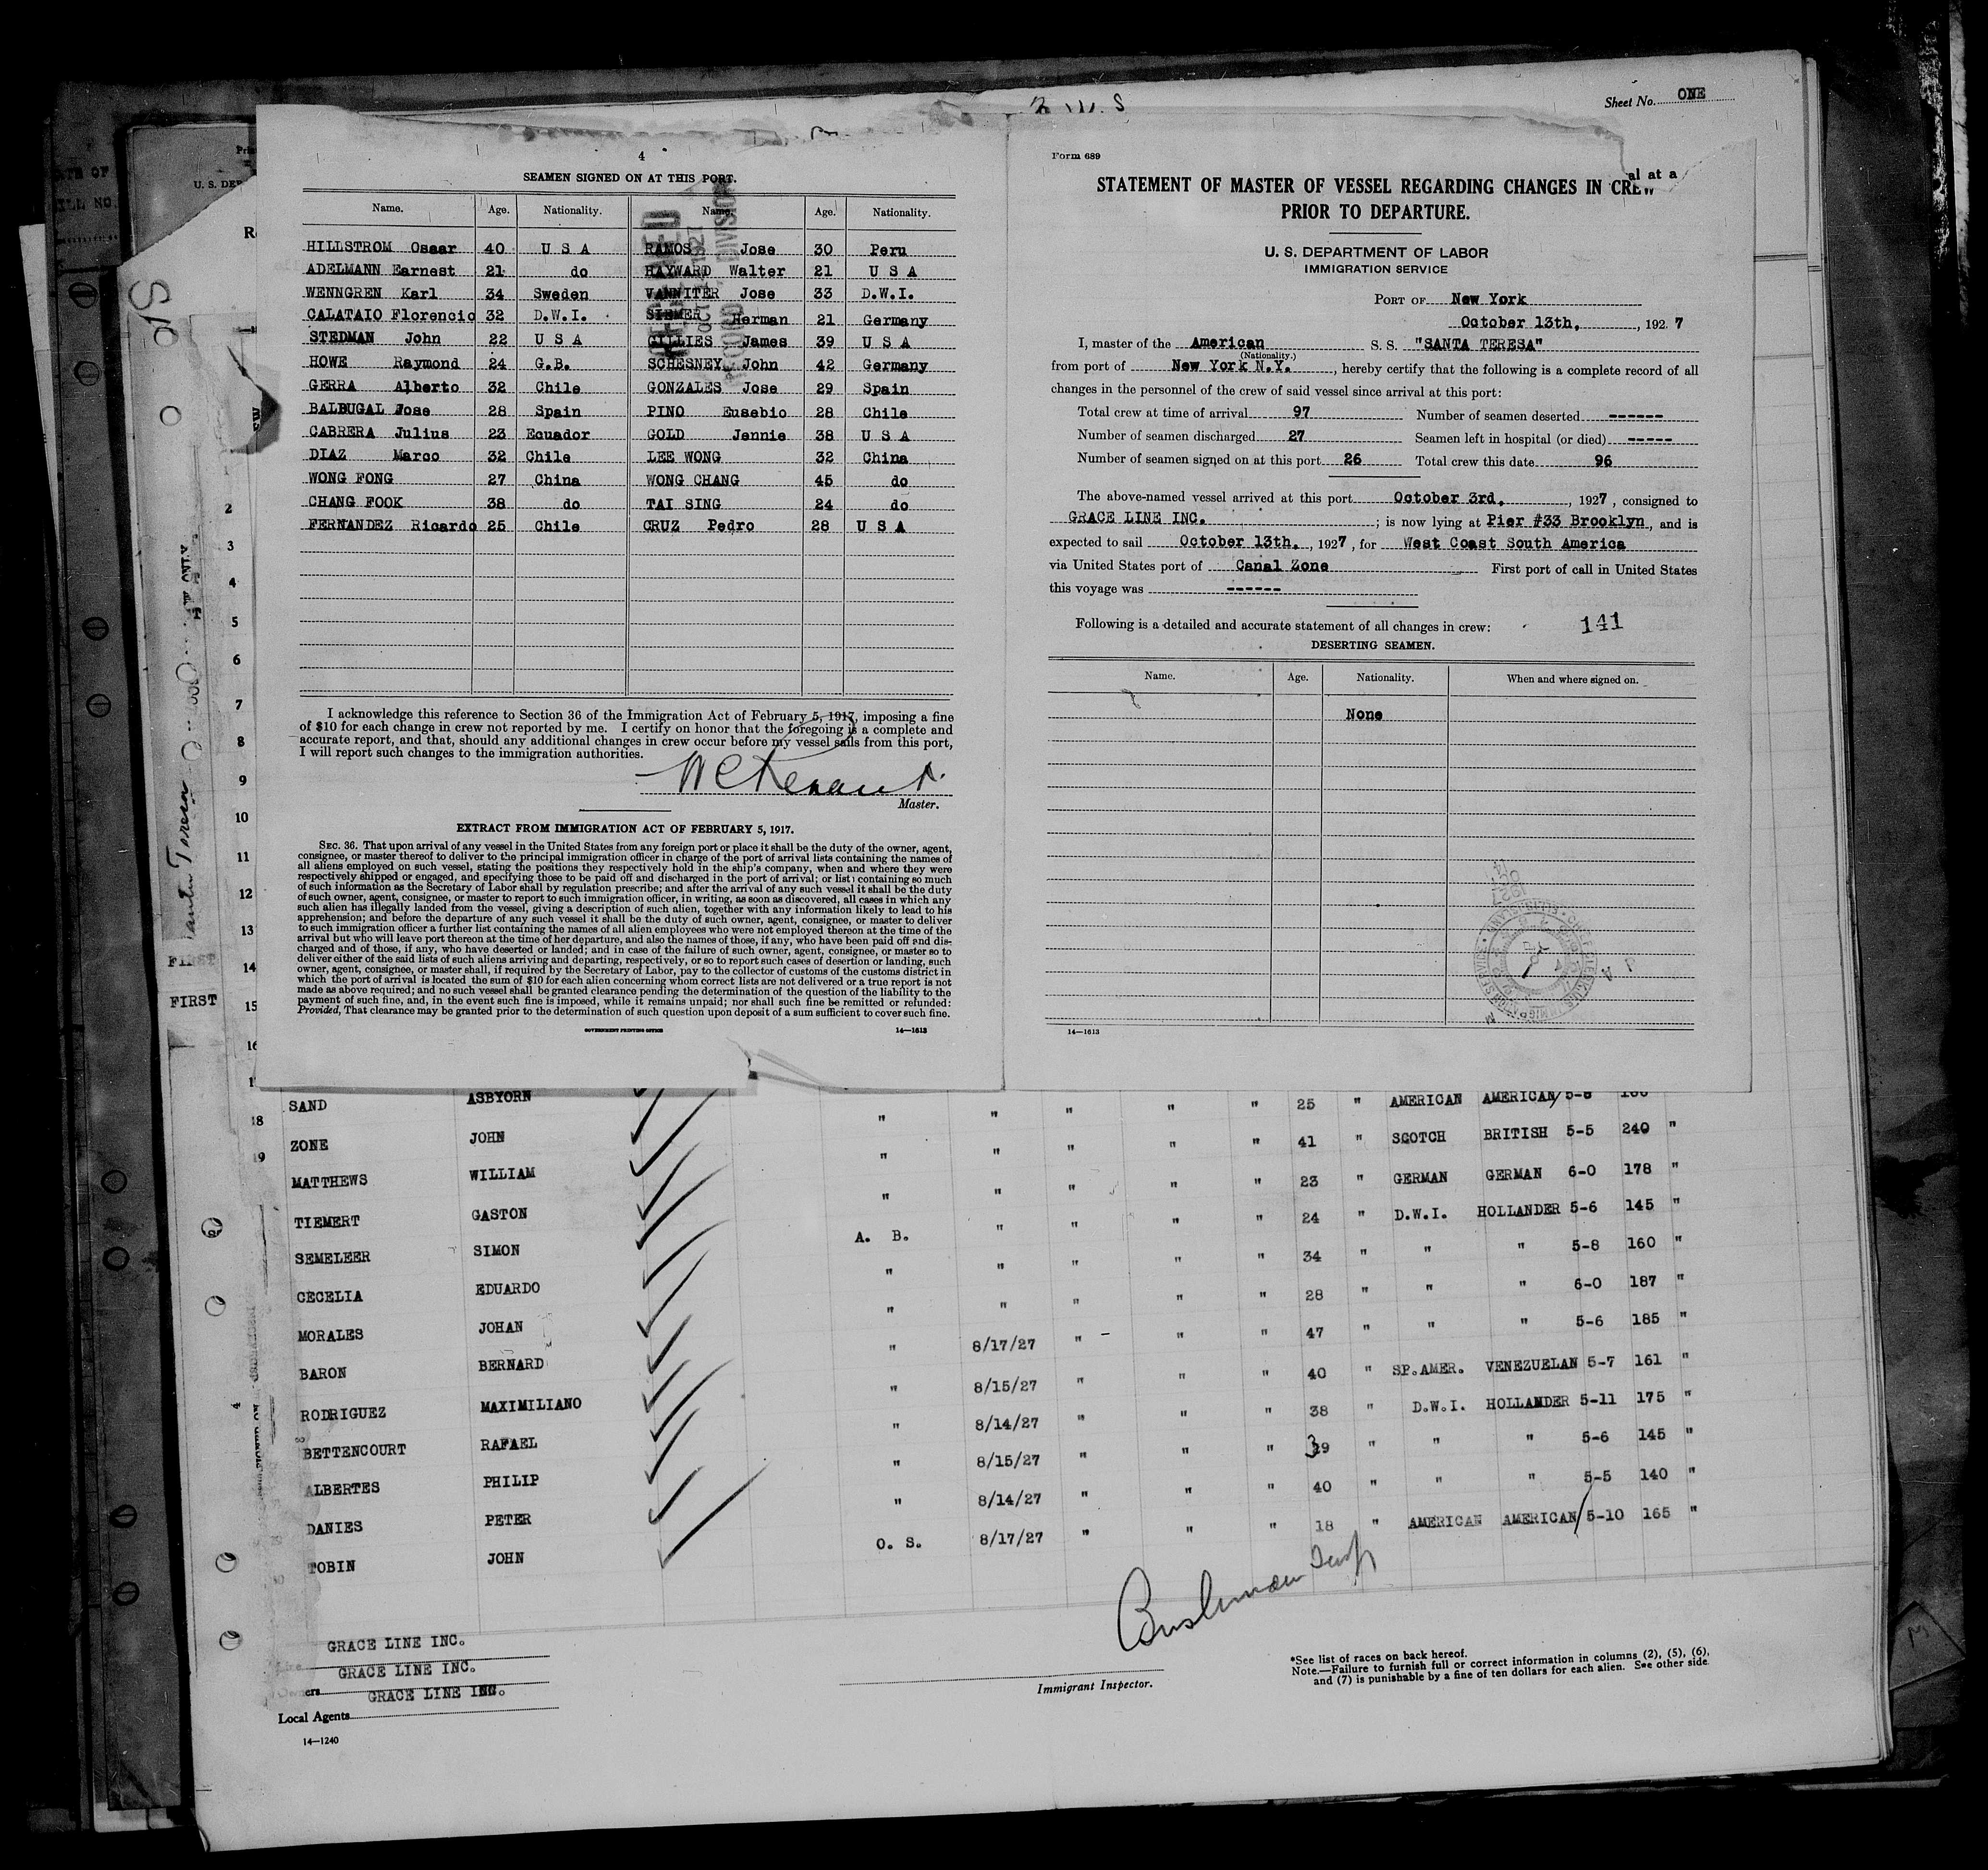 Sheet No. ONE
4
SEAMEN SIGNED ON AT THIS PORT.
Name. Age. Nationality. Name. Age. Nationality.
HILLSTROM Osaar 40 U S A RAMOS Jose 30 Peru
ADELMANN Earnest 21 do HAYWARD Walter 21 U S A
WENNGREN Karl 34 Sweden VANNITER Jose 33 D.W.I.
CALATAIO Florencio 32 D.W.I. SIEMER Herman 21 Germany
STEDMAN John 22 U S A GILLIES James 39 U S A
HOWE Raymond 24 G.B. SCHESNEY John 42 Germany
GERRA Alberto 32 Chile GONZALES Jose 29 Spain
BALBUGAL Jose 28 Spain PINO Eusebio 28 Chile
CABRERA Julius 23 Ecuador GOLD Jennie 38 U S A
DIAZ Marco 32 Chile LEE WONG 32 China
WONG FONG 27 China WONG CHANG 45 do
CHANG FOOK 38 do TAI SING 24 do
FERNANDEZ Ricardo 25 Chile CRUZ Pedro 28 U S A
I acknowledge this reference to Section 36 of the Immigration Act of February 5, 1917, imposing a fine
of $10 for each change in crew not reported by me. I certify on honor that the foregoing is a complete and
accurate report, and that, should any additional changes in crew occur before my vessel sails from this port,
I will report such changes to the immigration authorities.
Master.
EXTRACT FROM IMMIGRATION ACT OF FEBRUARY 5, 1917.
SEC. 36. That upon arrival of any vessel in the United States from any foreign port or place it shall be the duty of the owner, agent,
consignee, or master thereof to deliver to the principal immigration officer in charge of the port of arrival lists containing the names of
all aliens employed on such vessel, stating the positions they respectively hold in the ship's company, when and where they were
respectively shipped or engaged, and specifying those to be paid off and discharged in the port of arrival; or lists containing so much
of such information as the Secretary of Labor shall by regulation prescribe; and after the arrival of any such vessel it shall be the duty
of such owner, agent, consignee, or master to report to such immigration officer, in writing, as soon as discovered, all cases in which any
such alien has illegally landed from the vessel, giving a description of such alien, together with any information likely to lead to his
apprehension; and before the departure of any such vessel it shall be the duty of such owner, agent, consignee, or master to deliver
to such immigration officer a further list containing the names of all alien employees who were not employed thereon at the time of the
arrival but who will leave port thereon at the time of her departure, and also the names of those, if any, who have been paid off and dis-
charged and of those, if any, who have deserted or landed; and in case of the failure of such owner, agent, consignee, or master so to
deliver either of the said lists of such aliens arriving and departing, respectively, or so to report such cases of desertion or landing, such
owner, agent, consignee, or master shall, if required by the Secretary of Labor, pay to the collector of customs of the customs district in
which the port of arrival is located the sum of $10 for each alien concerning whom correct lists are not delivered or a true report is not
made as above required; and no such vessel shall be granted clearance pending the determination of the question of the liability to the
payment of such fine, and, in the event such fine is imposed, while it remains unpaid; nor shall such fine be remitted or refunded:
Provided, That clearance may be granted prior to the determination of such question upon deposit of a sum sufficient to cover such fine.
GOVERNMENT PRINTING OFFICE 14—1613
Form 689
STATEMENT OF MASTER OF VESSEL REGARDING CHANGES IN CREW
PRIOR TO DEPARTURE.
al at a
U. S. DEPARTMENT OF LABOR
IMMIGRATION SERVICE
PORT OF New York
October 13th, , 1927
I, master of the American S. S. "SANTA TERESA"
(Nationality.)
from port of New York N.Y. , hereby certify that the following is a complete record of all
changes in the personnel of the crew of said vessel since arrival at this port:
Total crew at time of arrival 97 Number of seamen deserted ------
Number of seamen discharged 27 Seamen left in hospital (or died) -----
Number of seamen signed on at this port 26 Total crew this date 96
The above-named vessel arrived at this port October 3rd, , 1927, consigned to
GRACE LINE INC. ; is now lying at Pier #33 Brooklyn, and is
expected to sail October 13th, , 1927, for West Coast South America
via United States port of Canal Zone First port of call in United States
this voyage was ------
Following is a detailed and accurate statement of all changes in crew: 141
DESERTING SEAMEN.
Name. Age. Nationality. When and where signed on.
None
14—1613
2
3
4
5
6
7
8
9
10
11
12
13
14
15
FIRST
FIRST
18 SAND ASBYORN " " " " " 25 " AMERICAN AMERICAN 5-8
19 ZONE JOHN " " " " " 41 " SCOTCH BRITISH 5-5 240 "
MATTHEWS WILLIAM " " " " " 23 " GERMAN GERMAN 6-0 178 "
TIEMERT GASTON A. B. " " " " 24 " D.W.I. HOLLANDER 5-6 145 "
SEMELEER SIMON " " " " " 34 " " " 5-8 160 "
CECELIA EDUARDO " " " " " 28 " " " 6-0 187 "
MORALES JOHAN " 8/17/27 " " " 47 " " " 5-6 185 "
BARON BERNARD " 8/15/27 " " " 40 " SP.AMER. VENEZUELAN 5-7 161 "
RODRIGUEZ MAXIMILIANO " 8/14/27 " " " 38 " D.W.I. HOLLANDER 5-11 175 "
BETTENCOURT RAFAEL " 8/15/27 " " " 39 " " " 5-6 145 "
ALBERTES PHILIP " 8/14/27 " " " 40 " " " 5-5 140 "
DANIES PETER O. S. 8/17/27 " " " 18 " AMERICAN AMERICAN 5-10 165 "
TOBIN JOHN
GRACE LINE INC.
GRACE LINE INC.
GRACE LINE INC.
Local Agents
14—1240
Immigrant Inspector.
*See list of races on back hereof.
Note.—Failure to furnish full or correct information in columns (2), (5), (6),
and (7) is punishable by a fine of ten dollars for each alien. See other side